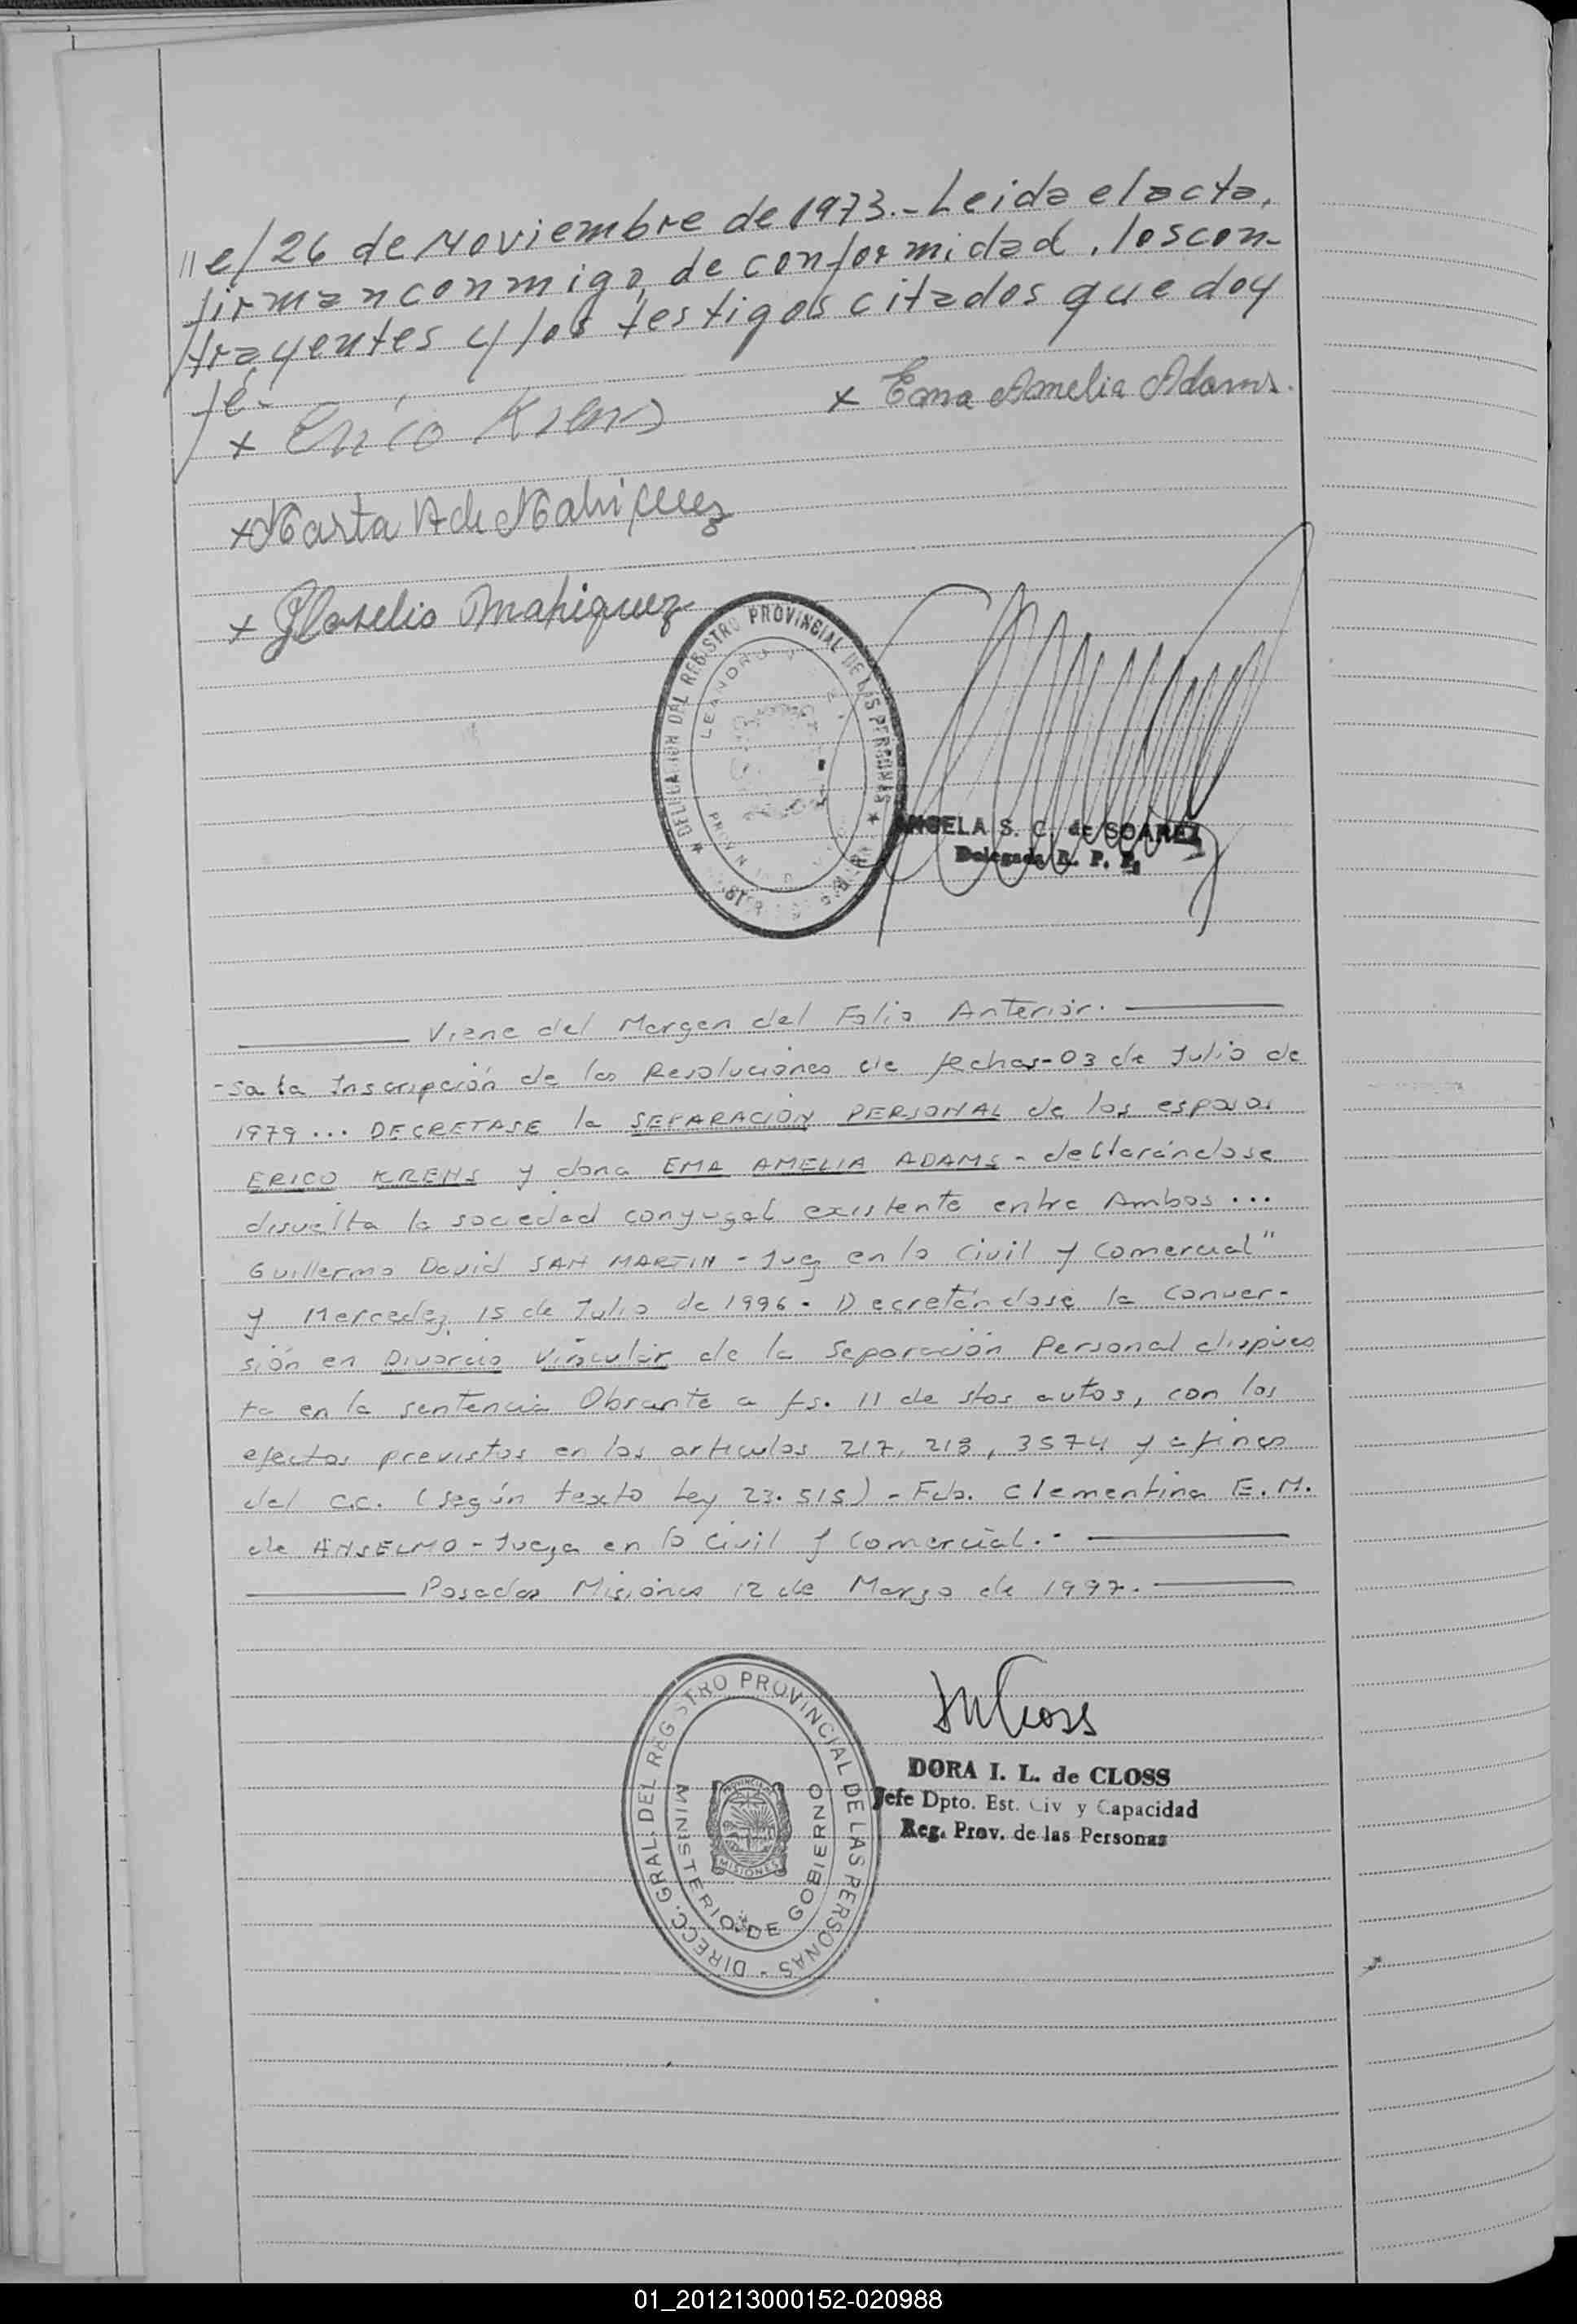 // el 26 de Noviembre de 1973.- Leida el acta,
firman conmigo, de conformidad, los con-
trayentes y los testigos citados que doy
fé.-
x Ema Amelia Adams.
x Erico Krens
x Marta A de Mahiquez
x Mahiquez
DELEGACION DEL REGISTRO PROVINCIAL DE LAS PERSONAS
LEANDRO N
ANGELA S. C. de SOAREZ
Delegada R. P. P.
Viene del Margen del Folio Anterior.
-sa la Inscripción de las Resoluciones de fechas-03 de Julio de
1979 ... DECRETASE la SEPARACIÓN PERSONAL de los esposos
ERICO KRENS y dona EMA AMELIA ADAMS - declarándose
disuelta la sociedad conyugal existente entre Ambos ...
Guillermo David SAN MARTIN - Juez en lo Civil y Comercial"
y Mercedez, 15 de Julio de 1996. Decretándose la Conver-
sión en Divorcio Vincular de la Separación Personal dispues
ta en la sentencia Obrante a fs. 11 de stos autos, con los
efectos previstos en los artículos 217, 218, 3574 y afines
del C.C. (según texto Ley 23.515) - Fdo. Clementina E. M.
de ANSELMO - Jueza en lo Civil y Comercial.-
Posadas Misiones 12 de Marzo de 1997.-
DIRECC. GRAL. DEL REGISTRO PROVINCIAL DE LAS PERSONAS -
MINISTERIO DE GOBIERNO
PROVINCIA
MISIONES
DORA I. L. de CLOSS
Jefe Dpto. Est. Civ y Capacidad
Reg. Prov. de las Personas
01_201213000152-020988